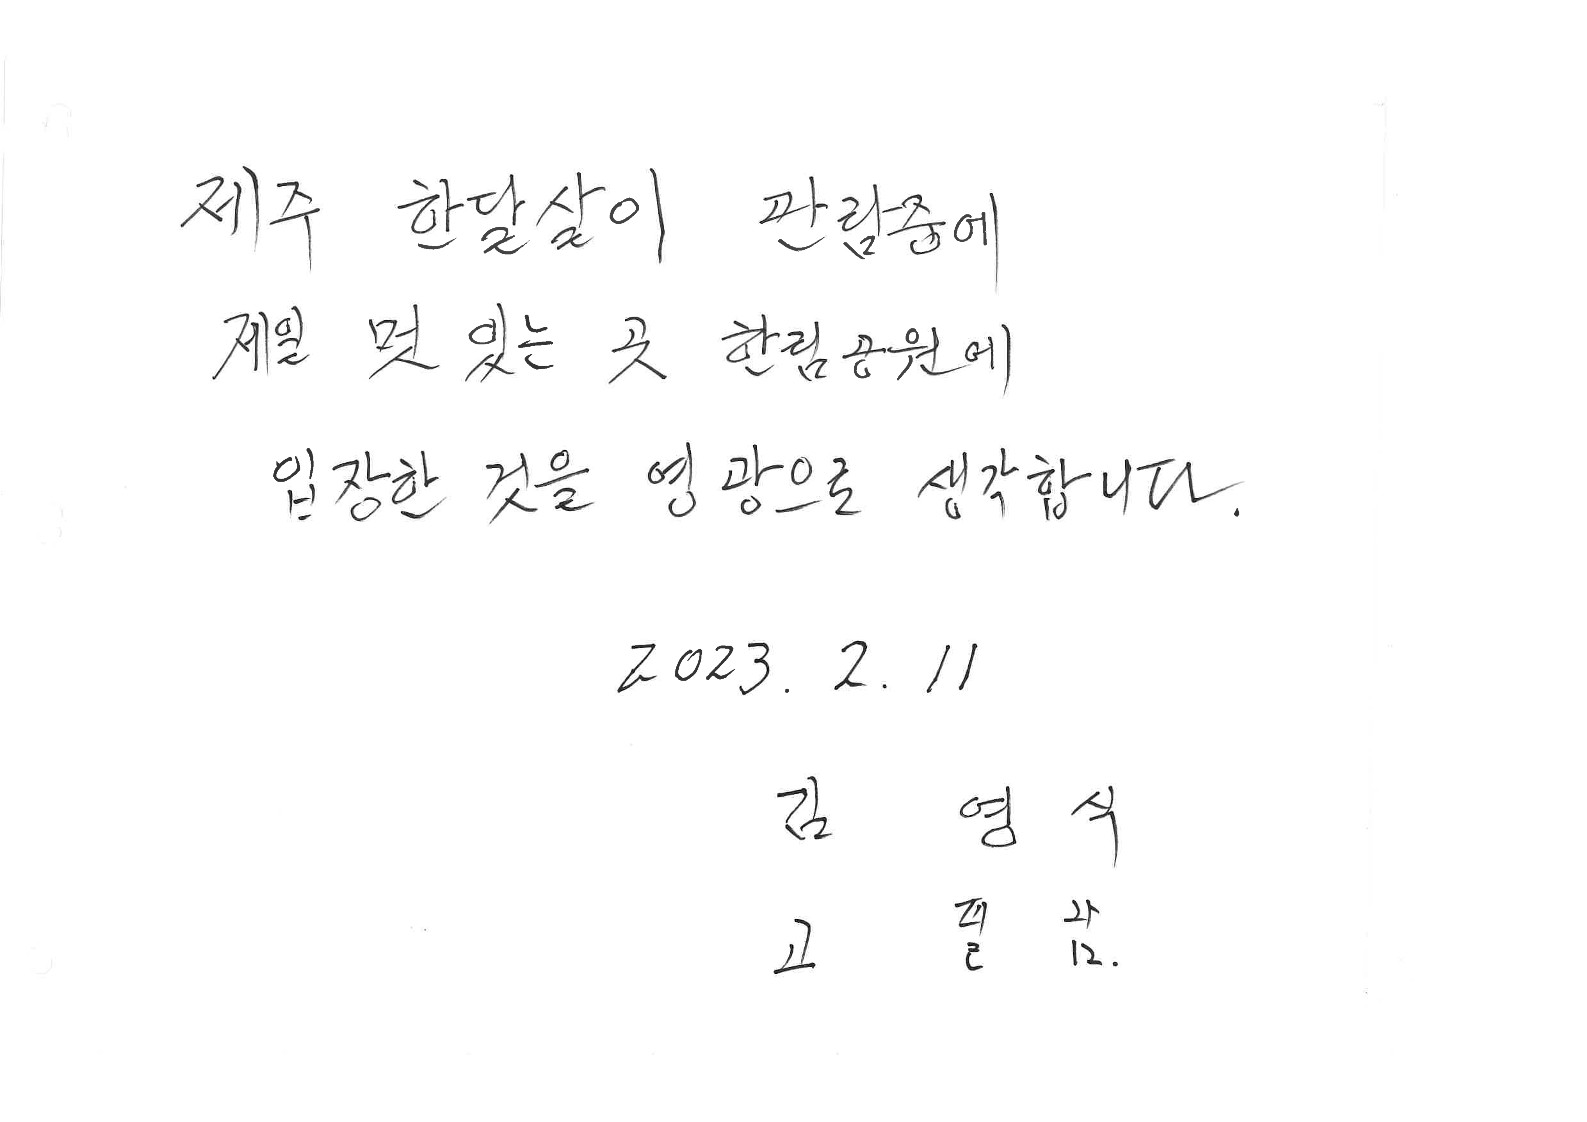 제주 한달살이 관람중에
제일 멋 있는 곳 한림공원에
입장한 것을 영광으로 생각합니다.
2023. 2. 11
김 영 식
고